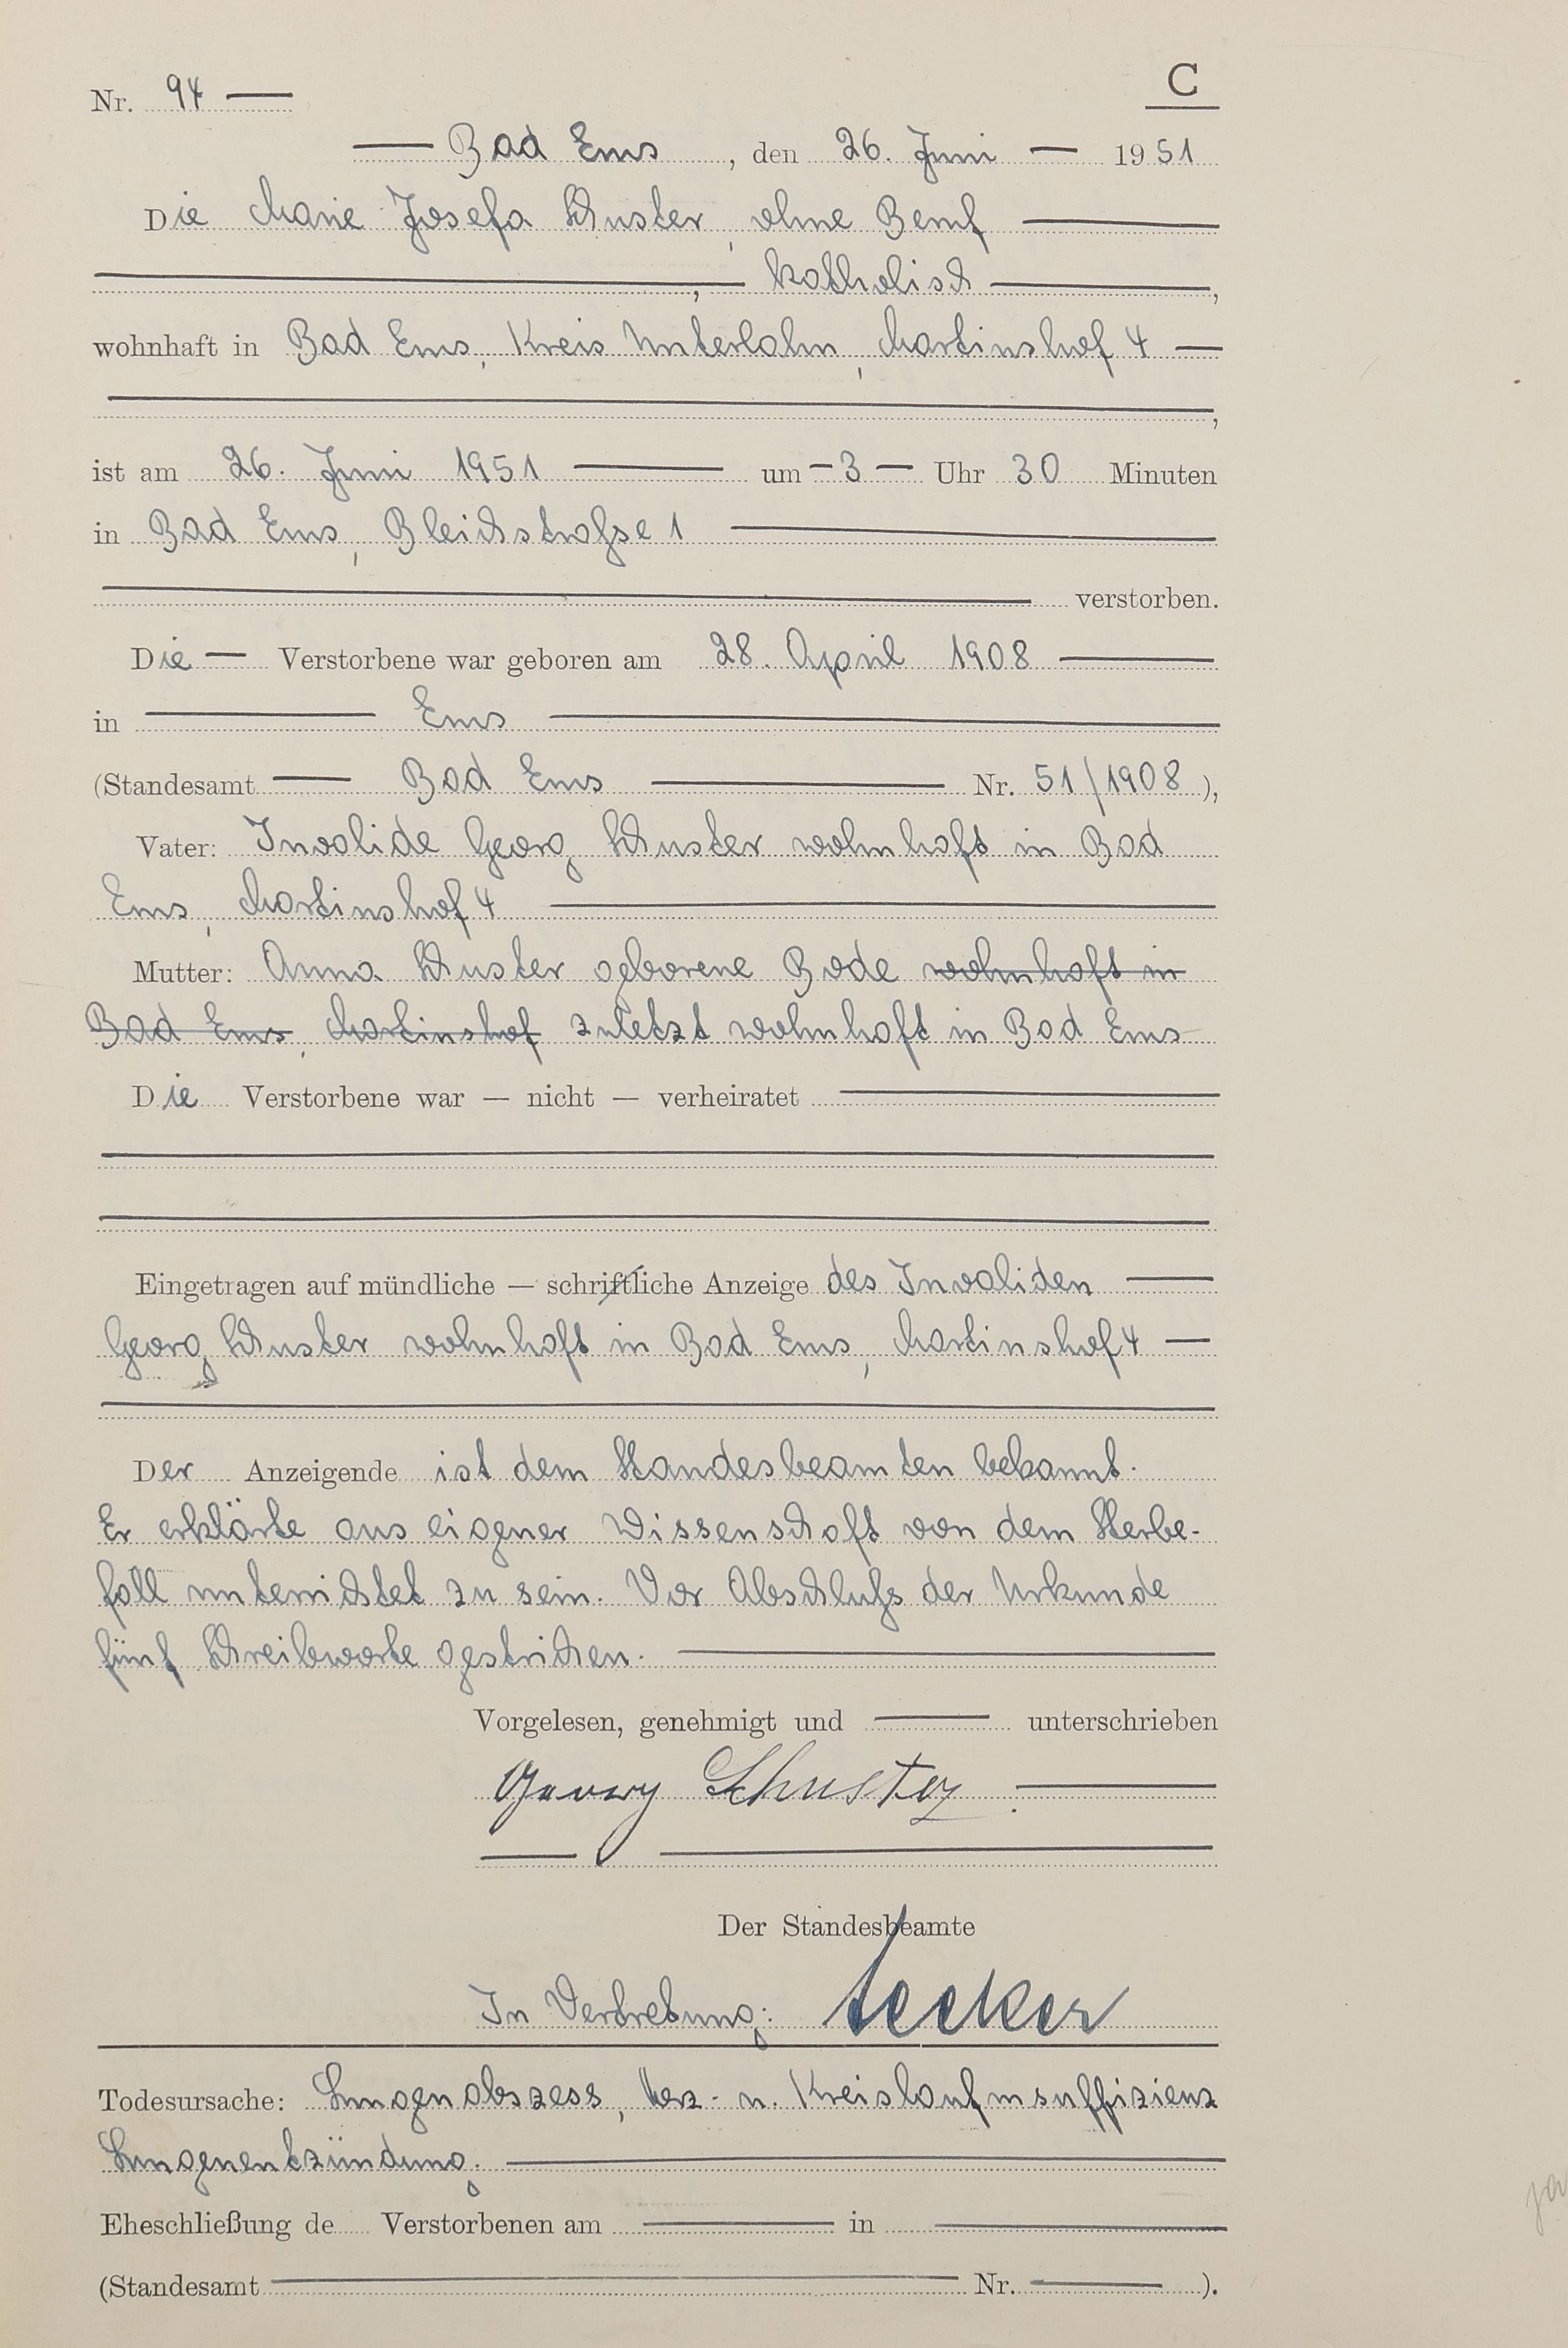 Nr. 94 — C
— Bad Ems, den 26. Juni — 1951
Die Marie Josefa Schuster, ohne Beruf —
—, — katholisch —,
wohnhaft in Bad Ems, Kreis Unterlahn, Martinshof 4 —
—,
ist am 26. Juni 1951 — um — 3 — Uhr 30 Minuten
in Bad Ems, Bleichstraße 1 —
— verstorben.
Die — Verstorbene war geboren am 28. April 1908 —
in — Ems —
(Standesamt — Bad Ems — Nr. 51/1908),
Vater: Invalide Georg Schuster wohnhaft in Bad
Ems, Martinshof 4 —
Mutter: Anna Schuster geborene Bode wohnhaft in
Bad Ems, Martinshof zuletzt wohnhaft in Bad Ems
Die Verstorbene war — nicht — verheiratet —
Eingetragen auf mündliche — schriftliche Anzeige des Invaliden —
Georg Schuster wohnhaft in Bad Ems, Martinshof 4 —
Der Anzeigende ist dem Standesbeamten bekannt.
Er erklärte aus eigener Wissenschaft von dem Sterbe-
fall unterrichtet zu sein. Vor Abschluß der Urkunde
fünf Schreibworte gestrichen. —
Vorgelesen, genehmigt und — unterschrieben
Georg Schuster. —
Der Standesbeamte
In Vertretung:
Todesursache: Lungenabszess, Herz- u. Kreislaufinsuffizienz
Lungenentzündung. —
Eheschließung de Verstorbenen am — in —
(Standesamt — Nr. — ).